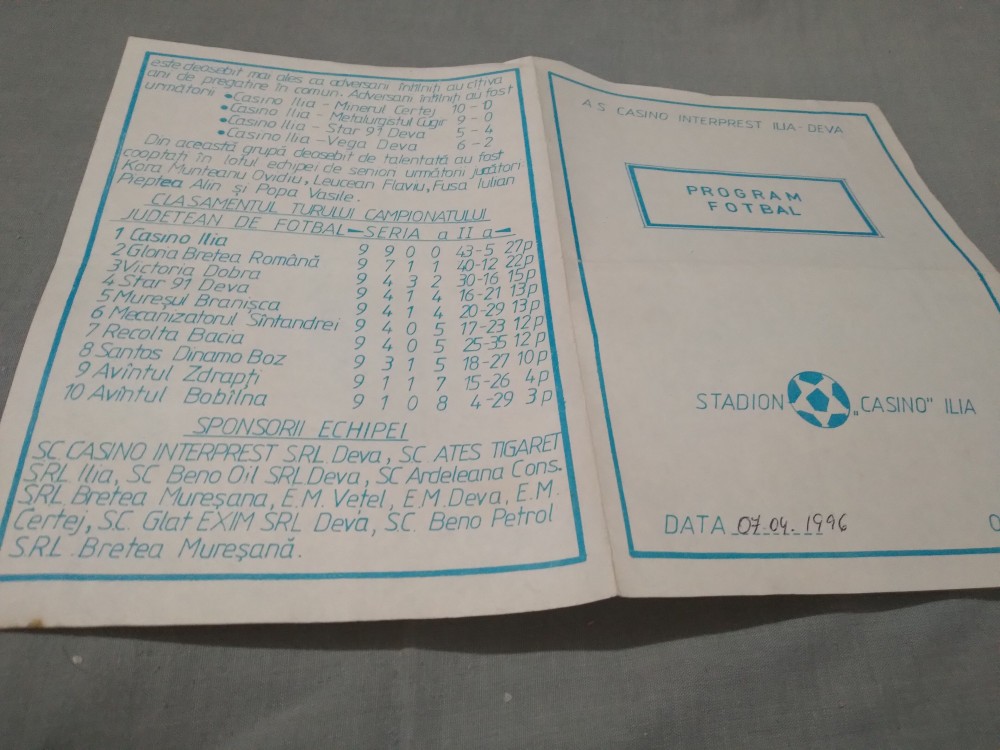 este deosebit mai ales ca adversarii întîlniți au cîțiva
ani de pregatire în comun. Adversarii întîlniți au fost
următorii •Casino Ilia - Minerul Certej 10-0
•Casino Ilia - Metalurgistul Cugir 9-0
•Casino Ilia - Star 91 Deva 5-4
•Casino Ilia - Vega Deva 6-2
Din această grupă deosebit de talentată au fost
cooptați în lotul echipei de seniori următorii jucători:
Kora Munteanu Ovidiu, Leucean Flaviu, Fusa Iulian
Pleptea Alin și Popa Vasile.
CLASAMENTUL TURULUI CAMPIONATULUI
JUDEȚEAN DE FOTBAL - SERIA a II a -
1 Casino Ilia 9 9 0 0 43-5 27p
2 Gloria Bretea Română 9 7 1 1 40-12 22p
3 Victoria Dobra 9 4 3 2 30-16 15p
4 Star 91 Deva 9 4 1 4 16-21 13p
5 Mureșul Branișca 9 4 1 4 20-29 13p
6 Mecanizatorul Sîntandrei 9 4 0 5 17-23 12p
7 Recolta Bacia 9 4 0 5 25-35 12p
8 Santos Dinamo Boz 9 3 1 5 18-27 10p
9 Avîntul Zdrapți 9 1 1 7 15-26 4p
10 Avîntul Bobîlna 9 1 0 8 4-29 3p
SPONSORII ECHIPEI
SC CASINO INTERPREST SRL Deva, SC ATES TIGARET
SRL Ilia, SC Beno Oil SRL Deva, SC Ardeleana Cons.
SRL Bretea Mureșana, E.M. Vețel, E.M. Deva, E.M.
Certej, SC. Glat EXIM SRL Deva, SC. Beno Petrol
S.R.L. Bretea Mureșană.
A.S. CASINO INTERPREST ILIA-DEVA
PROGRAM
FOTBAL
STADION „CASINO" ILIA
DATA 07.04.1996